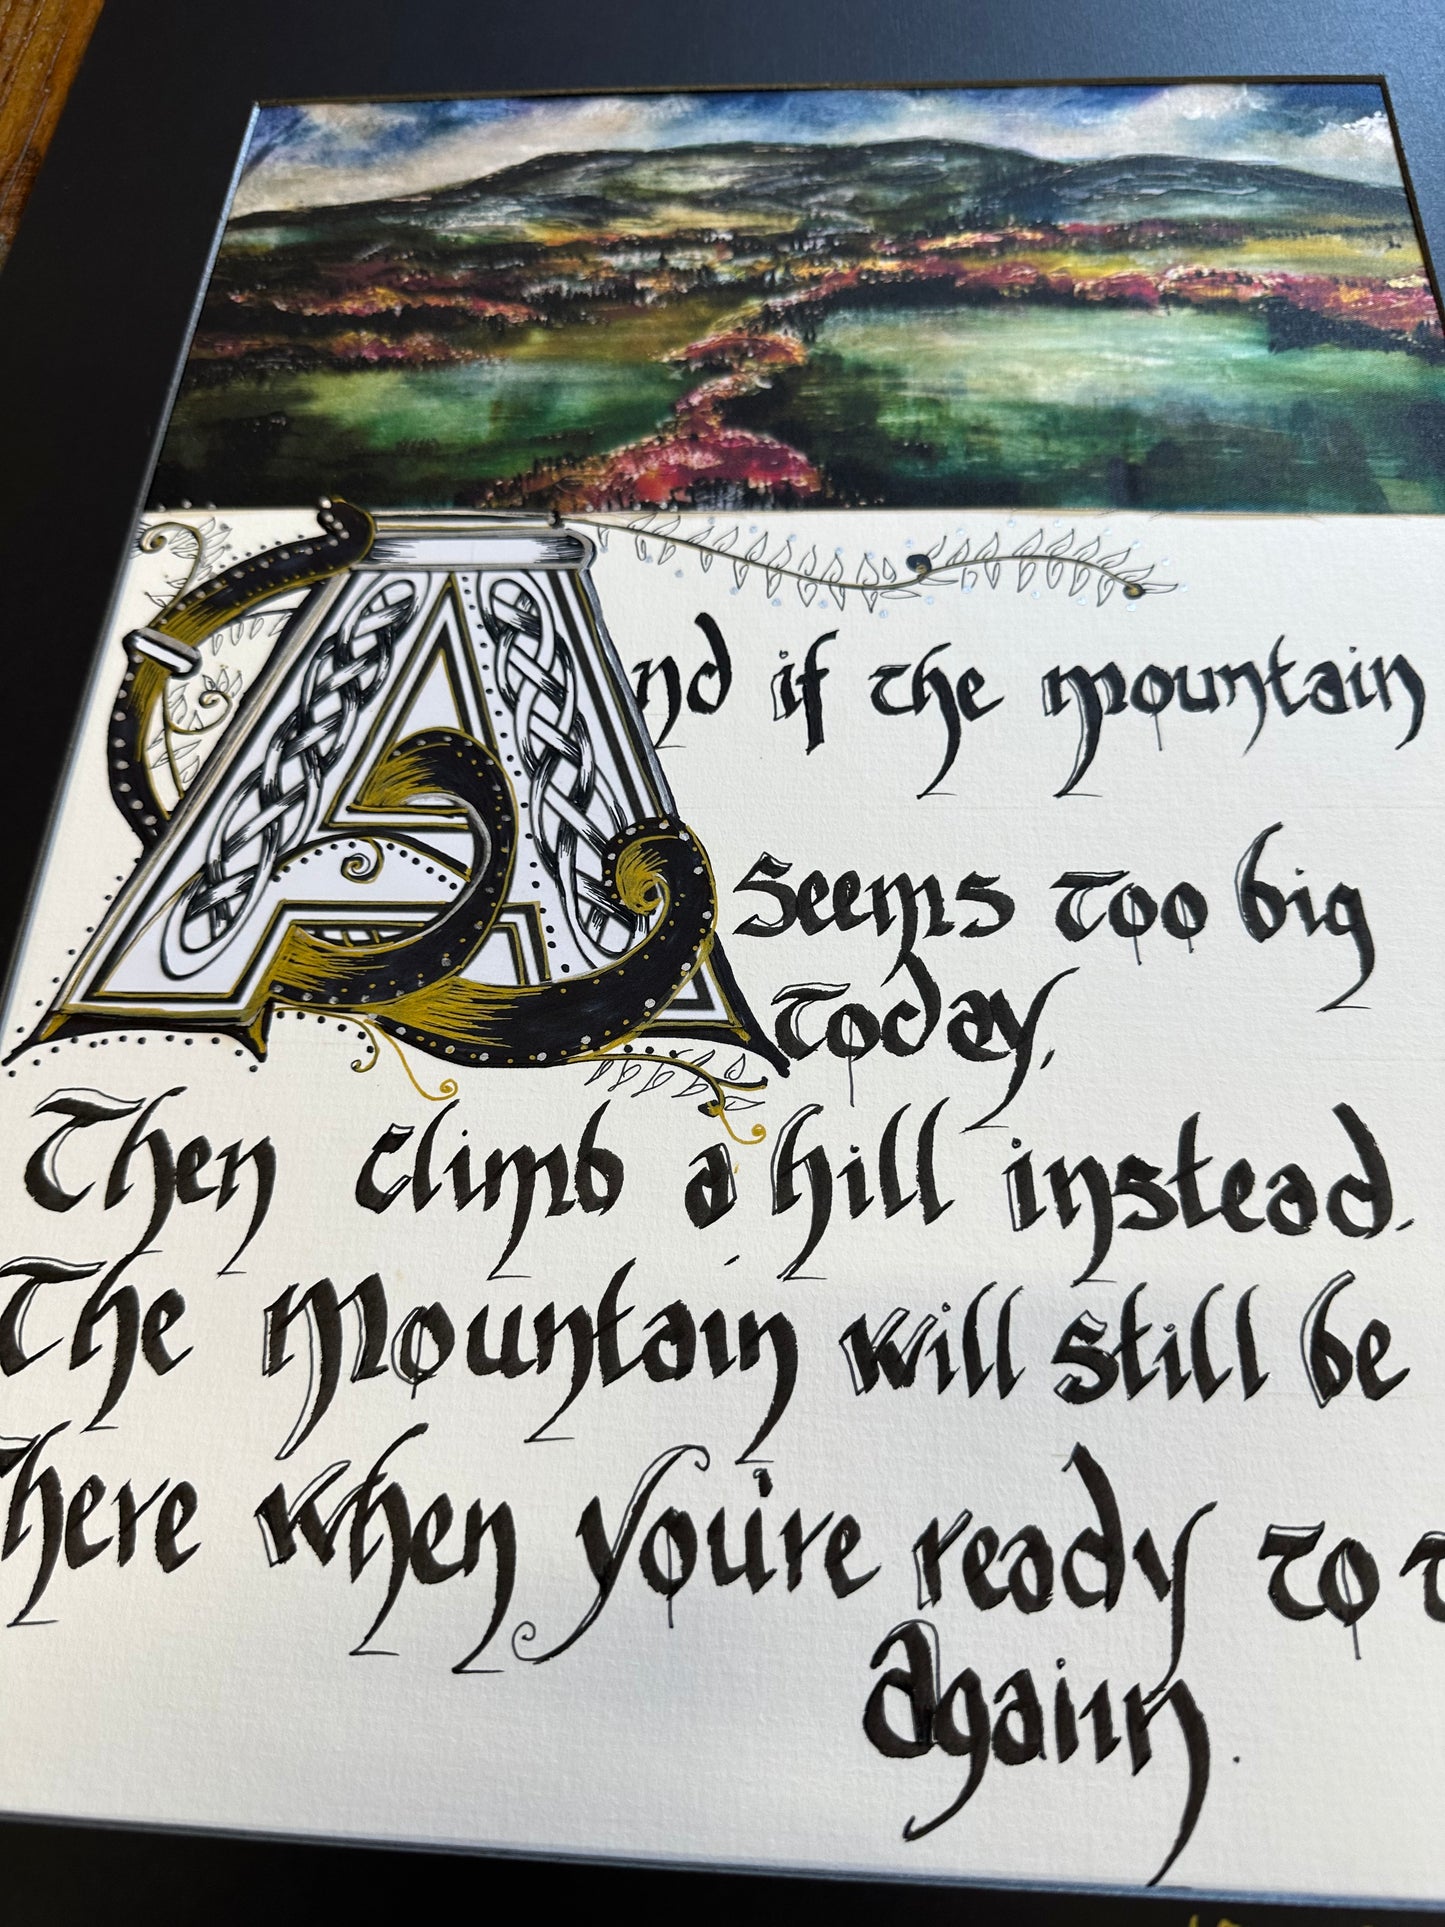 And if the mountain
seems too big
today,
Then climb a hill instead.
The Mountain will still be
There when you're ready to
Again.